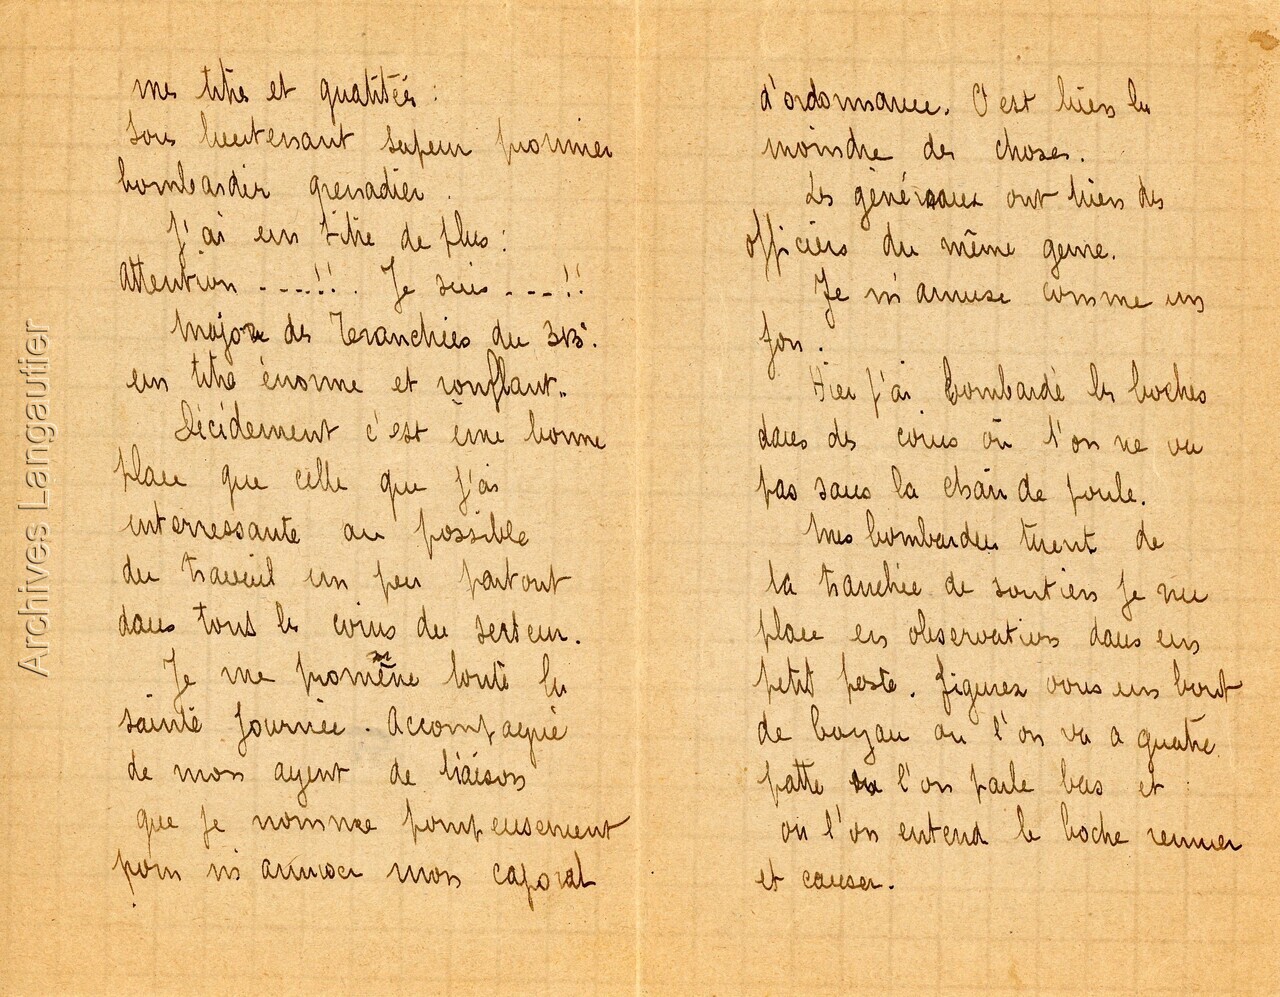 mes titre et qualitées :
Sous lieutenant sapeur pionnier
bombardier grenadier.
J'ai un titre de plus :
Attention ----!!. Je suis ----!!
Major des Tranchées du 313e.
un titre énorme et ronflant..
Décidement c'est une bonne
place que celle que j'ai
interressante au possible
du travail un peu partout
dans tous les coins du secteur.
Je me promène toute la
sainte journée. Accompagné
de mon agent de liaison
que je nomme pompeusement
pour m'amuser mon caporal
d'ordonnance. C'est bien la
moindre des choses.
Les généraux ont bien des
officiers du même genre.
Je m'amuse comme un
fou.
Hier j'ai bombardé les boches
dans des coins où l'on ne va
pas sans la chair de poule.
Mes bombardiers tirent de
la tranchée de soutien je me
place en observation dans un
petit poste. figurez vous un bout
de boyau ou l'on va a quatre
patte ou l'on parle bas et
où l'on entend le boche remuer
et causer.
Archives Langautier